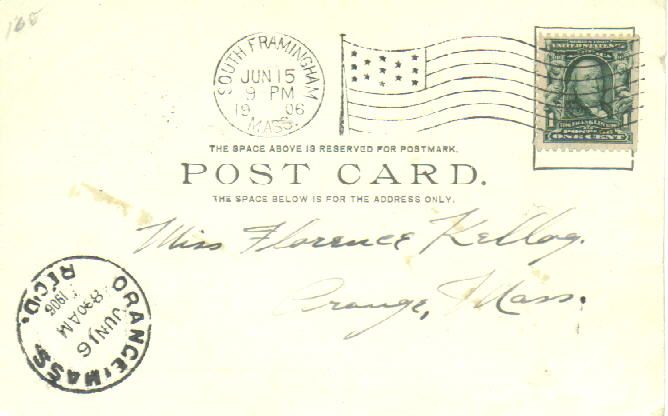 160
SOUTH FRAMINGHAM
JUN 15
9 PM
19 06
MASS.
UNITED STATES
FRANKLIN
1 1
POSTAGE
ONE CENT
THE SPACE ABOVE IS RESERVED FOR POSTMARK.
POST CARD.
THE SPACE BELOW IS FOR THE ADDRESS ONLY.
Miss Florence Kellog.
Orange, Mass.
ORANGE, MASS.
JUN 16
8 30 AM
1906
REC'D.